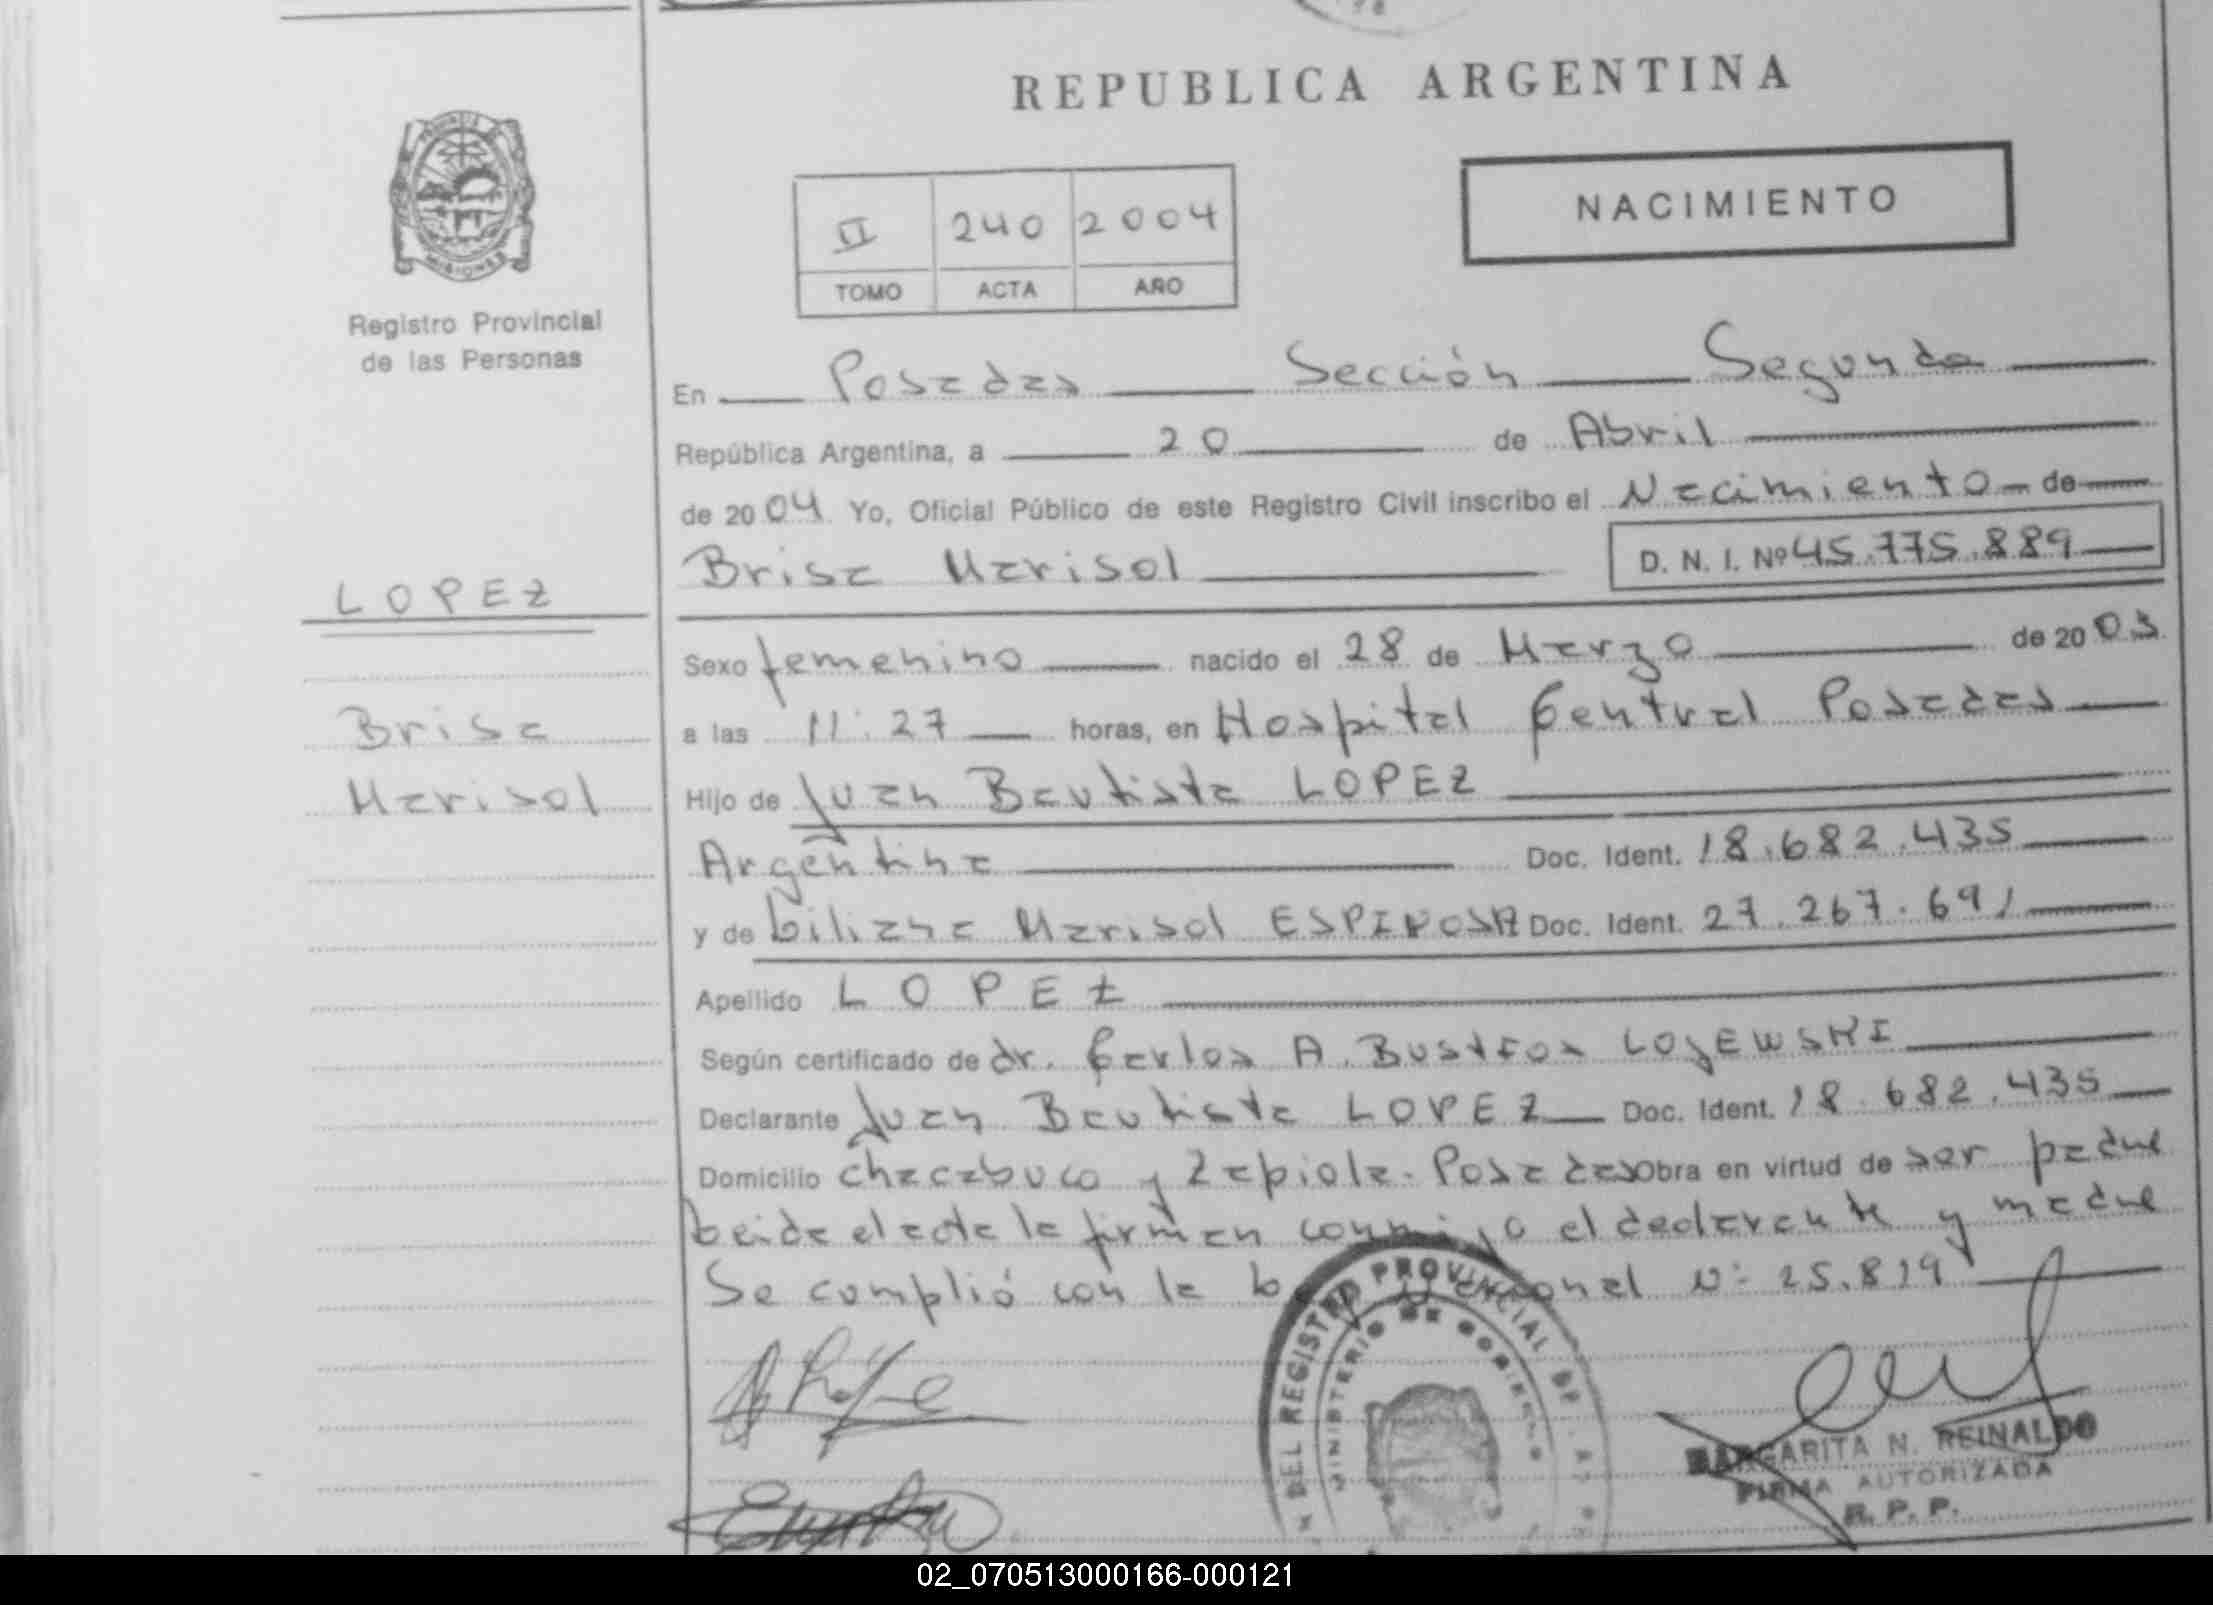 REPUBLICA ARGENTINA
PROVINCIA DE
MISIONES
Registro Provincial
de las Personas
II 240 2004
TOMO ACTA AÑO
NACIMIENTO
En Posadas Sección Segunda
República Argentina, a 20 de Abril
de 2004 Yo, Oficial Público de este Registro Civil inscribo el Nacimiento de
Brisa Marisol D. N. I. Nº 45.775.889
LOPEZ
Brisa
Marisol
Sexo femenino nacido el 28 de Marzo de 2003
a las 11:27 horas, en Hospital Central Posadas
Hijo de Juan Bautista LOPEZ
Argentina Doc. Ident. 18.682.435
y de Liliana Marisol ESPINOSA Doc. Ident. 27.267.691
Apellido LOPEZ
Según certificado de dr. Carlos A. Bustos LOJEWSKI
Declarante Juan Bautista LOPEZ Doc. Ident. 18.682.435
Domicilio Chacabuco y Zapiola. Posadas Obra en virtud de ser padre
Leida el acta la firman conmigo el declarante y madre
Se cumplió con la Nº 25.819
DEL REGISTRO PROVINCIAL DE
MINISTERIO DE GOBIERNO
MARGARITA N. REINALDO
FIRMA AUTORIZADA
R. P. P.
02_070513000166-000121